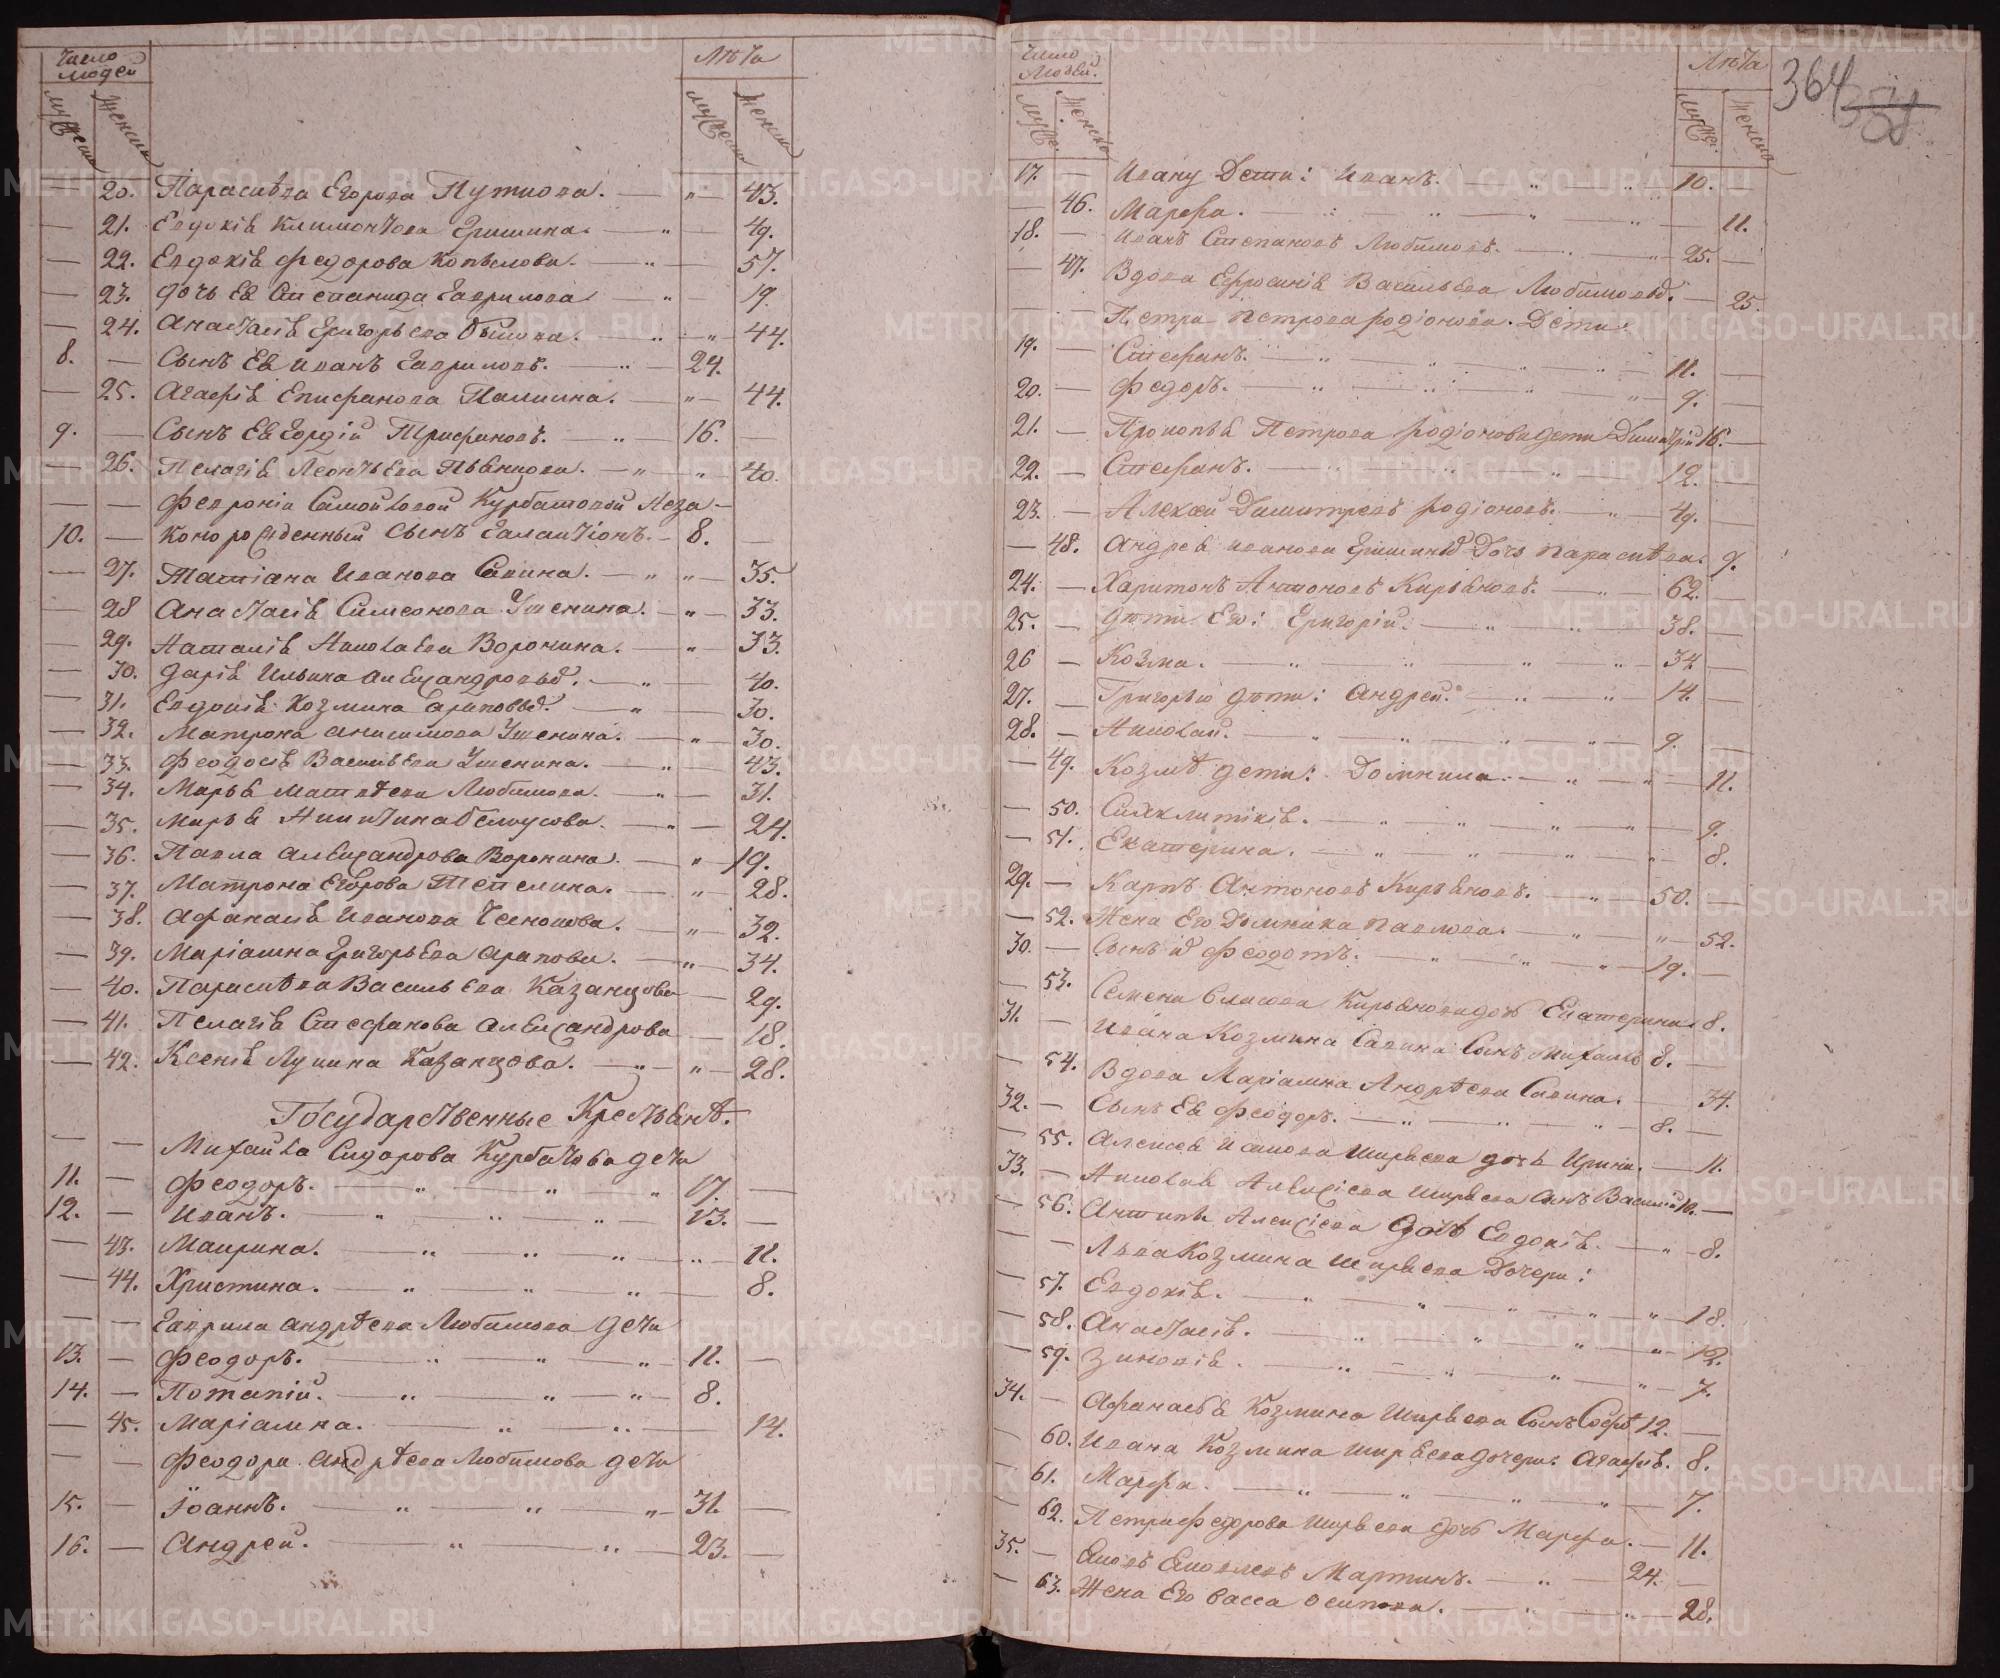 Число людей
Лѣта
мужеска
женска
мужеска
женска
20. Параскѣва Егорова Путилова. — „ — 43.
— 21. Евдокія Климонтова Гришина. — „ — 49.
— 22. Евдокія Федорова Копылова. — „ — 57.
— 23. Дочь Ея Степанида Гаврилова — „ — 19.
— 24. Анастасія Григорьева — „ — 44.
8. — Сынъ Ея Иванъ Гавриловъ. — „ — 24.
— 25. Агафія Епифанова Палкина. — „ — 44.
9. — Сынъ Ея Гордій Трифоновъ. — „ — 16. —
— 26. Пелагія Леонтьева — „ — 40.
— — Февроніи Самойловой Курбатовой Неза-
10. — коннорожденный сынъ Галактіонъ. — 8. —
— 27. Татіана Иванова Савина. — „ „ — 35.
— 28 Анастасія Симеонова Ушенина. — „ — 33.
— 29. Наталія Николаева Воронина. — „ — 33.
— 30. Дарія Ильина Александровыхъ. — „ — 40.
— 31. Евдокія Козмина — „ — 30.
— 32. Матрона Анисимова Ушенина. — „ — 30.
— 33. Феодосія Васильева Ушенина. — „ — 43.
— 34. Марья Матвѣева Любимова. — „ — 31.
— 35. Марья Никитина Белоусова. — „ — 24.
— 36. Павла Александрова Воронина. — „ — 19.
— 37. Матрона Егорова Тепелина. — „ — 28.
— 38. Афанасія Иванова — „ — 32.
— 39. Маріамна Григорьева Арапова. — „ — 34.
— 40. Параскѣва Васильева Казанцова — 29.
— 41. Пелагія Стефанова Александрова — 18.
— 42. Ксенія Лукина Казанцова. — „ — „ — 28.
Государственные Крестьянѣ.
— — Михайла Сидорова Курбатова дети
11. — Феодоръ. — „ — „ — „ 17. —
12. — Иванъ. — „ — „ — „ — 13. —
— 43. Маврина. — „ — „ — „ — „ — 11.
— 44. Христина. — „ — „ — „ — 8.
— — Гаврила Андрѣева Любимова дети
13. — Феодоръ. — „ — „ — „ — 11. —
14. — Потапій. — „ — „ — „ — 8. —
— 45. Маріамна. — „ — „ — 14.
— — Феодора Андрѣева Любимова дети
15. — Іоаннъ. — „ — „ — „ — 31. —
16. — Андрей. — „ — „ — 23. —
Число Людей.
Лѣта
364
мужс.
женска
мужс.
женска
17. — Ивану Дети: Иванъ. — „ — „ — 10. —
— 46. Марфа. — „ — „ — „ — „ — 11.
18. — Иванъ Степановъ Любимовъ. — „ — „ — 25. —
— 47. Вдова Ефросинія Васильева Любимовыхъ. — 25.
— — Петра Петрова Родіонова. Дети:
19. — Стефанъ. — „ — „ — „ — 11. —
20. — Федоръ. — „ — „ — „ — „ — 9. —
21. — Прокопья Петрова Родіонова дети Димитрій 16. —
22. — Стефанъ. — „ — „ — „ — 12. —
23. — Алексей Димитревъ Родіоновъ. — „ — 49. —
— 48. Андрея Иванова Гришиныхъ Дочь Параскѣва. 9.
24. — Харитонъ Антоновъ Кирьяновъ. — „ — 62. —
25. — Дѣти Его: Григорій. — „ — „ — 38. —
26 — Козма. — „ — „ — „ — „ — 34 —
27. — Григорью дѣти: Андрей. — „ — „ — 14. —
28. — Николай. — „ — „ — „ — „ — 9. —
— 49. Козмѣ дети: Домнина. — „ — „ — 11.
— 50. Синклитікія. — „ — „ — „ — „ — 9.
— 51. Екатерина. — „ — „ — „ — „ — 8.
29. — Карпъ Антоновъ Кирьяновъ. — „ — 50. —
— 52. Жена Его Домника Павлова. — „ — „ — 52.
30. — Сынъ ихъ Феодотъ. — „ — „ — „ — 19. —
— 53. Семена Кирьянова дочь Екатерина. 8.
31. — Ивана Козмина Савина Сынъ Михаилъ 8. —
— 54. Вдова Маріамна Андрѣева Савина. — 34.
32. — Сынъ Ея Феодоръ. — „ — „ — „ — 8. —
— 55. Алексея Исакова Ширяева дочь Ирина. — 11.
33. — Николая Алексіева Ширяева Сынъ Василій 10. —
— 56. Антипы Алексіева Дочь Евдокія. — „ — 8.
— — Льва Козмина Ширяева Дочери:
— 57. Евдокія. — „ — „ — „ — „ — „ — 18.
— 58. Анастасія. — „ — „ — „ — „ — 12.
— 59. Зиновія. — „ — „ — „ — „ — 7.
34. — Афанасья Козмина Ширяева Сынъ 12. —
— 60. Ивана Козмина Ширяева дочери: Агафія. 8.
— 61. Марфа. — „ — „ — „ — „ — 7.
— 62. Петра Федорова Ширяева дочь Марфа. — 11.
35. — Яковъ Яковлевъ Мартинъ. — „ — 24. —
— 63. Жена Его Васса Осипова. — „ — „ — 28.
METRIKI.GASO-URAL.RU